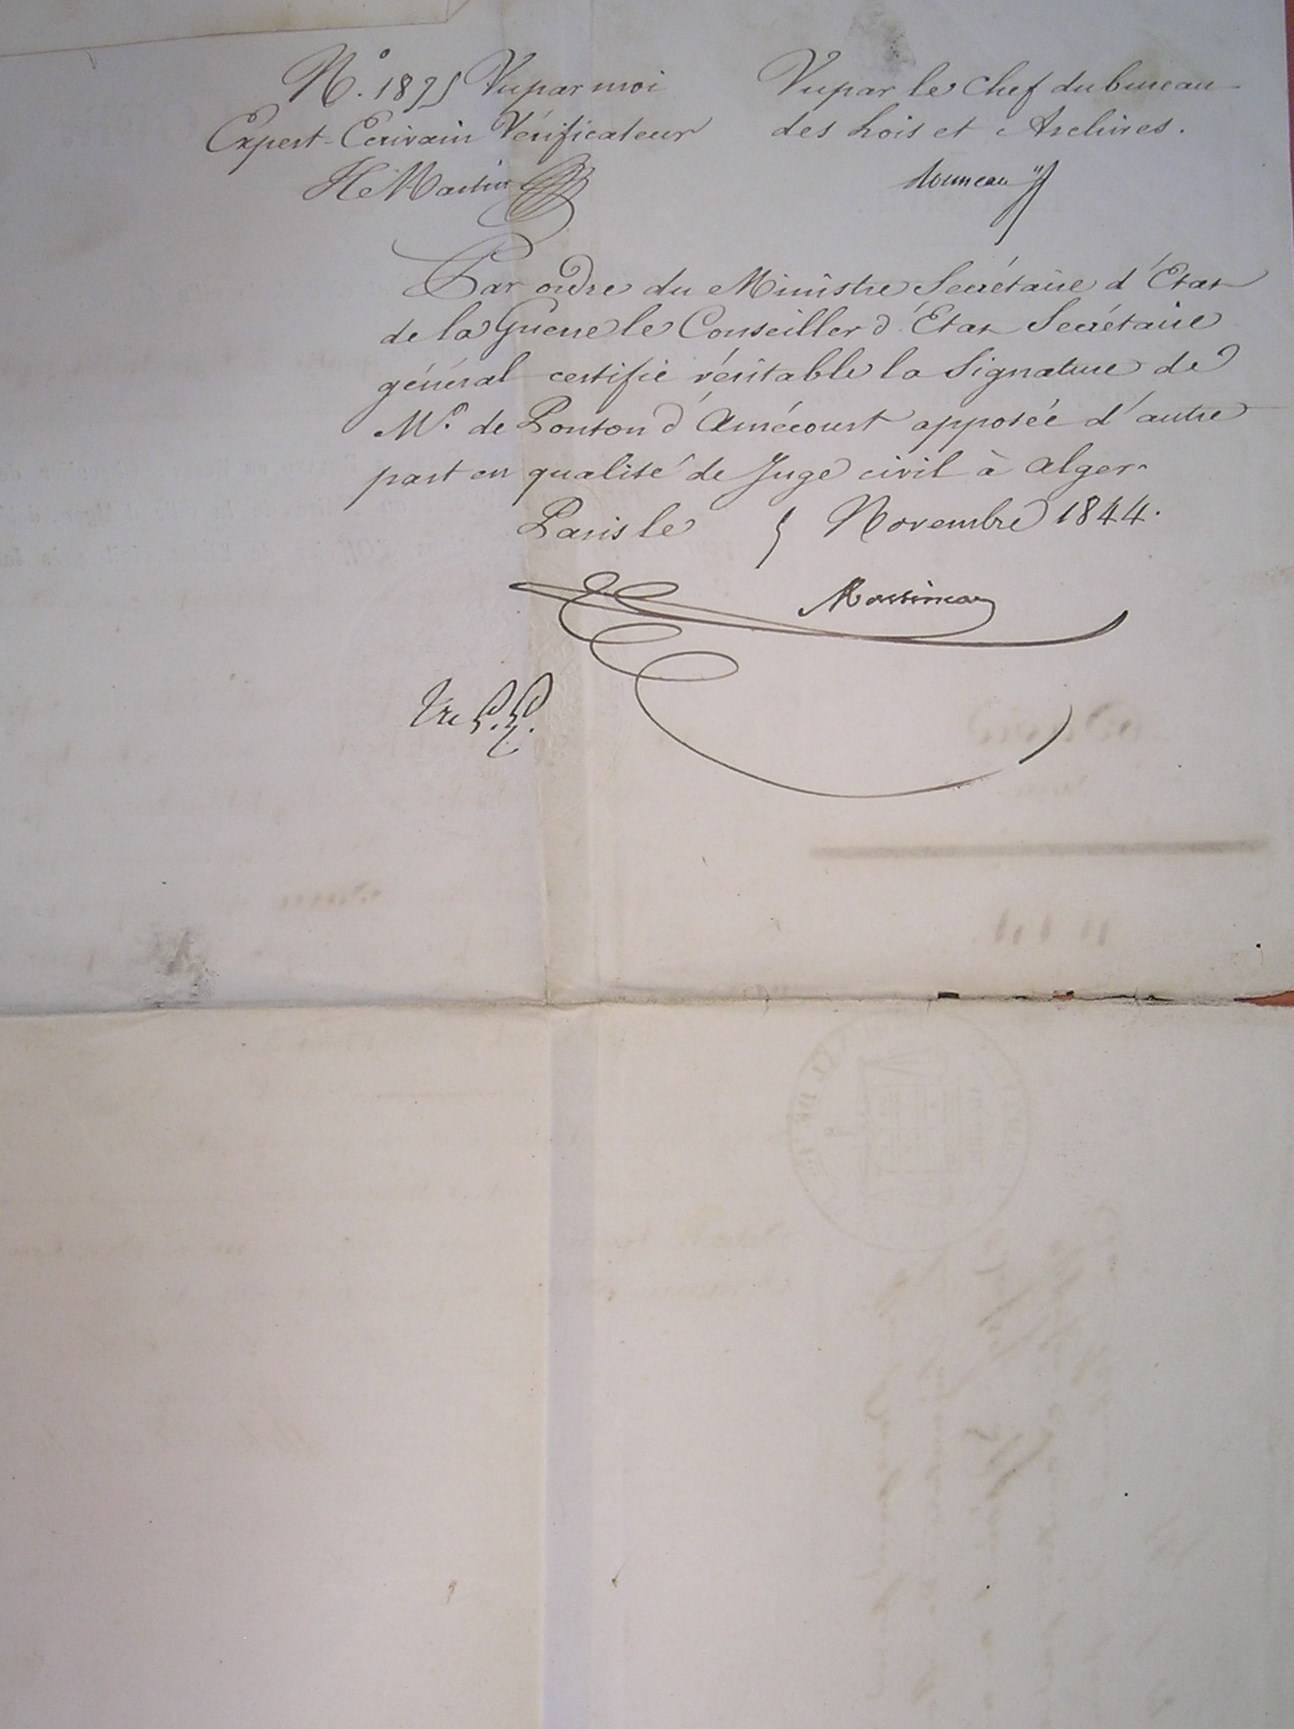 N.° 1895 Vu par moi
Expert-Ecrivain Vérificateur
H. Martin
Vu par le Chef du bureau
des Lois et Archives.
Par ordre du Ministre Secrétaire d'Etat
de la Guerre le Conseiller d'Etat Secrétaire
général certifie véritable la Signature de
M.r de Ponton d'Amécourt apposée d'autre
part en qualité de Juge civil à Alger.
Paris le 5 Novembre 1844.
Martineau